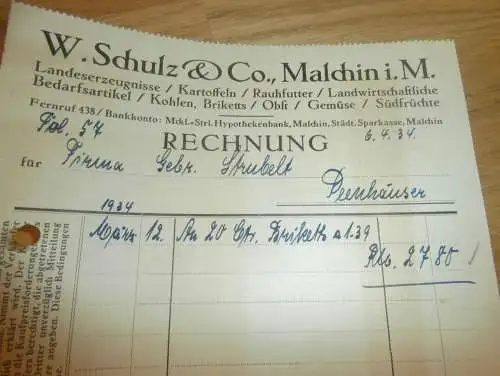 W. Schulz & Co., Malchin i. M.
Landeserzeugnisse / Kartoffeln / Rauhfutter / Landwirtschaftliche
Bedarfsartikel / Kohlen, Briketts / Obst / Gemüse / Südfrüchte
Fernruf 438 / Bankkonto: Mckl.-Strl. Hypothekenbank, Malchin, Städt. Sparkasse, Malchin
Fol. 57
RECHNUNG
6.4.34.
für Firma Gebr. Strubelt
Peenhäuser
1934
März 12. An 20 Ctr. Briketts a 1.39
Rm. 27.80